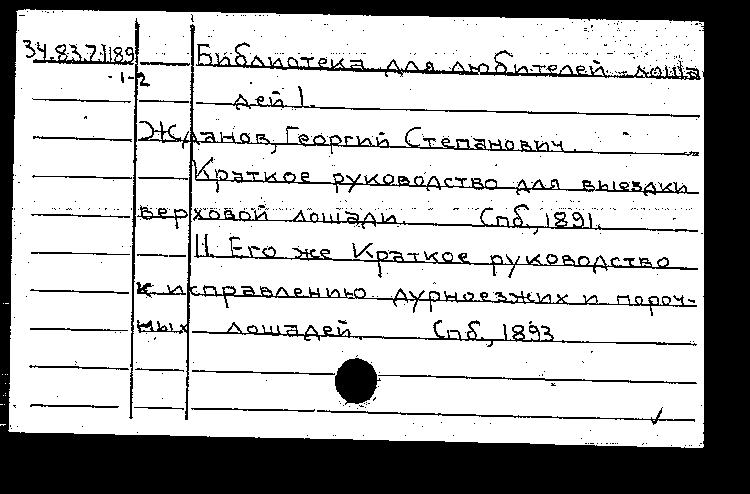 34.83.7.1189 Библиотека для любителей лоша
-1-2
дей I.
Жданов, Георгий Степанович.
Краткое руководство для выездки
верховой лошади. Спб., 1891.
II. Его же Краткое руководство
к исправлению дурноезжих и пороч-
ных лошадей. Спб., 1893.